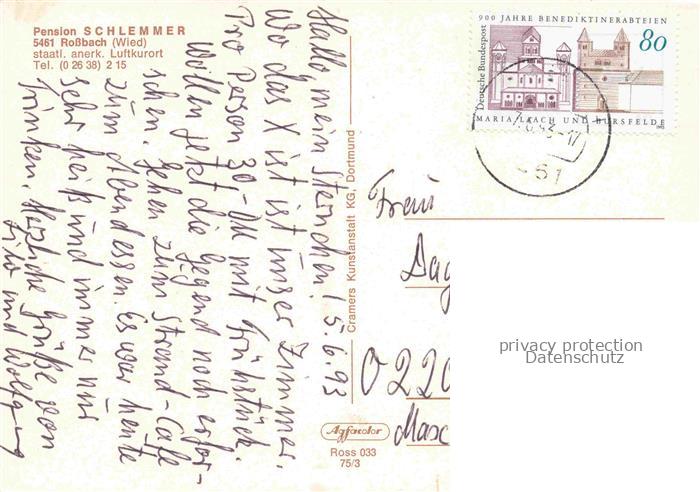 Pension SCHLEMMER
5461 Roßbach (Wied)
staatl. anerk. Luftkurort
Tel. (0 26 38) 2 15
Hallo mein Sternchen! 15.6.93
Wo das X ist ist unser Zimmer.
Pro Person 30,-DM mit Frühstück.
Wollen jetzt die Gegend noch erfor-
schen. Gehen zum Strand-Cafe
zum Abendessen. Es war heute
sehr heiß und immer nur
trinken. Herzliche Grüße von
und Wolfgang
Cramers Kunstanstalt KG, Dortmund
Agfacolor
Ross 033
75/3
900 JAHRE BENEDIKTINERABTEIEN
Deutsche Bundespost
80
MARIA LAACH UND BURSFELDE
1993
Frau
Dag
0220
privacy protection
Datenschutz